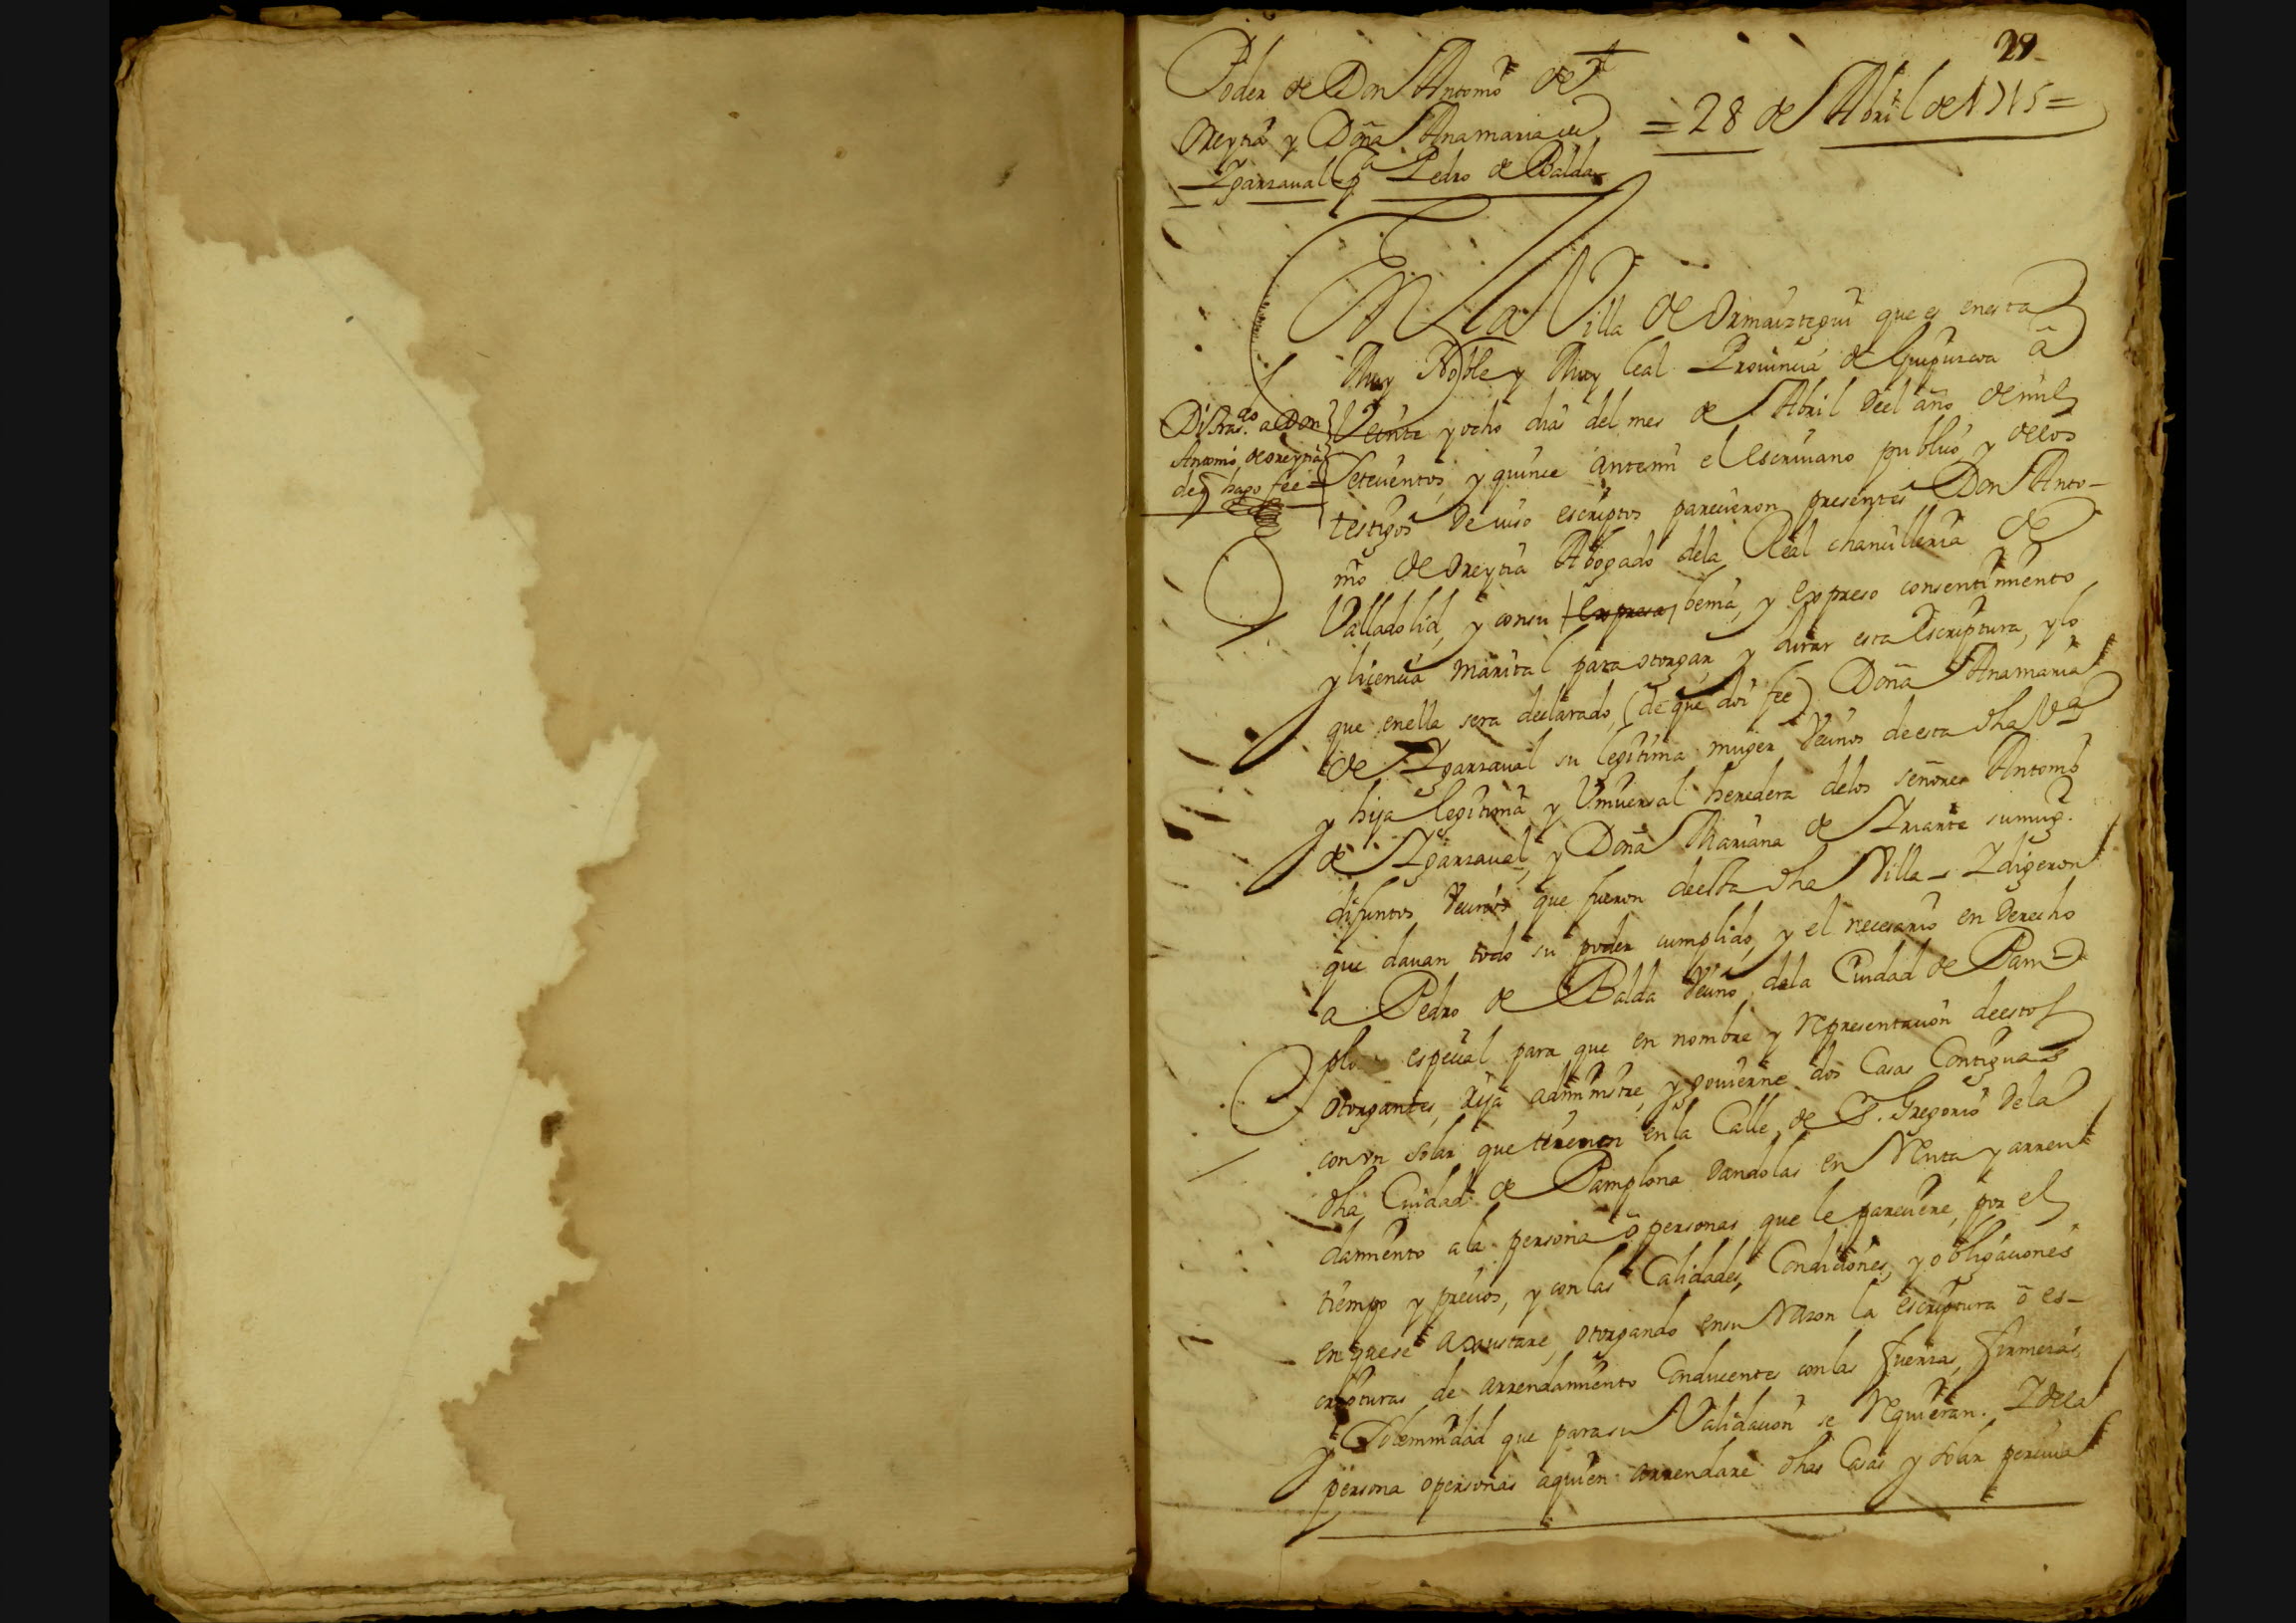 29
Poder de Don Antonio de
Oreytia y Doña Anamaria de
Ygarzaual a Pedro de Balda
= 28 de Abril de 1715 =
En la Villa de Ormaiztegui que es enesta
Muy Noble y Muy Leal Prouincia de Guipuzcoa â
Veinte y ocho dias del mes de Abril deel año de mil
Setecientos y quince antemi el escriuano publico, y delos
testigos de iuso escriptos parecieron presentes Don Anto-
nio de Oreytia Abogado dela Real chancilleria de
Valladolid, y consu expresa benia, y expreso consentimiento,
y licencia marital para otorgar y jurar esta Escriptura, y lo
que enella sera declarado, (de que doi fee) Doña Anamaria
de Ygarzaual su legitima muger Vecinos deesta dha Va
y hija legitima y Vniuersal heredera delos señores Antonio
de Ygarzaual, y Doña Mariana de Yriarte sumug.
difuntos Vecinos que fueron deesta dha Villa = Y digeron
que dauan todo su poder cumplido, y el necesario en Derecho
a Pedro de Balda Vecino dela Ciudad de Pam-
plo especial para que en nombre y representacion deestos
otorgantes, rija administre, y gouierne dos Casas Contiguas
con vn solar que tienen en la Calle de S. Gregorio dela
dha Ciudad de Pamplona dandolas en Renta y arren
damiento ala persona ô personas que le pareciere, por el
tiempo y precios, y con las Calidades, Condiciones, y obligaciones
en que se axustare, otorgando ensu Razon la escriptura ô es-
cripturas de arrendamiento Conducentes conlas fuerzas, firmezas,
y Solemnidad que parasu Validacion se requieran. Y dela
persona opersonas aquien arrendare dhas Casas y solar perciua
Di tras.do a Don
Antonio de oreytia
de q hago fee =